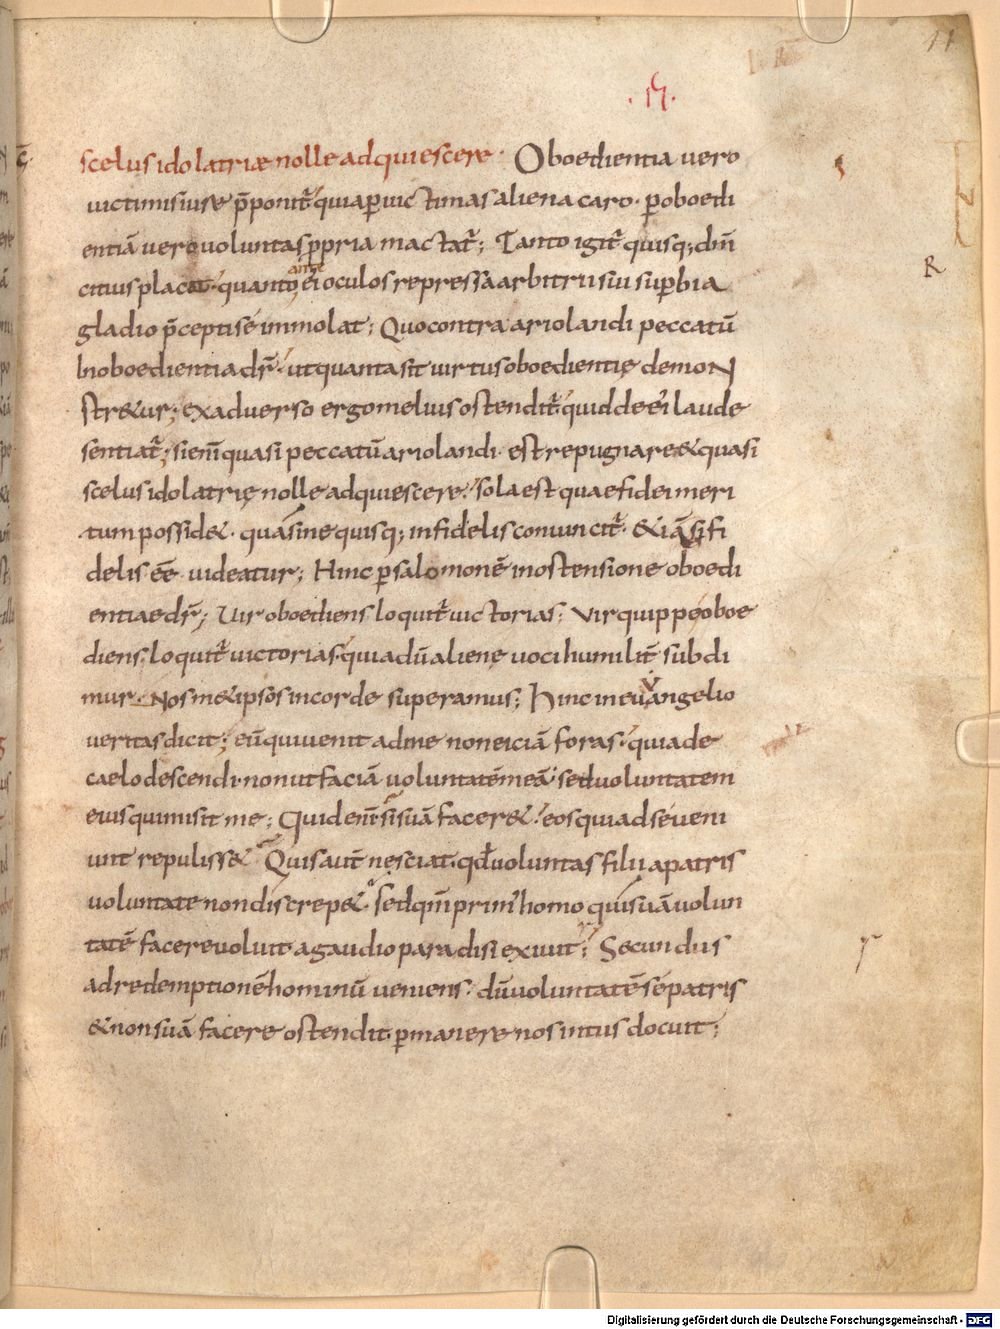 11
scelus idolatriæ nolle adquiescere · Oboedientia uero
uictimis iure p̄ponit̄ quia ꝑ uictimas aliena caro · ꝑ oboedi
entiā uero uoluntas ꝓpria mactat̄ ; Tanto igit̄ quisq; dm̄
citius placat · quanto ante ei oculos repressa arbitrii sui suꝑbia
gladio p̄cepti se immolat ; Quo contra ariolandi peccatū
Inoboedientia dr̄ · ut quanta sit uirtus oboedientię demoN
str&ur ; ex aduerso ergo melius ostendit̄ quid de ei laude
sentiat̄ ; si eni̅ quasi peccatū ariolandi · est repugnare & quasi
scelus idolatrię nolle adquiescere · sola est quae fidei meri
tum possid& · quā sine quisq; infidelis conuincit̄ · & iā si fi
delis ēe uideatur ; Hinc ꝑ salomonē in ostensione oboedi
entiae dr̄ ; Uir oboediens loquit̄ uictorias ; Vir quippe oboe
diens loquit̄ uictorias · quia dū alienę uoci humilit̄ subdi
mur · Nos m&ipsos in corde superamus ; Hinc in euangelio
ueritas dicit ; eū qui uenit ad me non eiciā foras · quia de
caelo descendi · non ut faciā uoluntatē meā · sed uoluntatem
eius qui misit me ; Quid eni̅ si suā facer& · eos qui ad se ueni
unt repuliss& Quis aut̄ nesciat · qđ uoluntas filii a patris
uoluntate non discrep& · sed qm̄ prim' homo qui suā uolun
tatē facere uoluit a gaudio paradisi exiuit ; Secundus
ad redemptionē hominū ueniens · dū uoluntatē se patris
& non suā facere ostendit ꝑmanere nos intus docuit ;
R
Digitalisierung gefördert durch die Deutsche Forschungsgemeinschaft - DFG